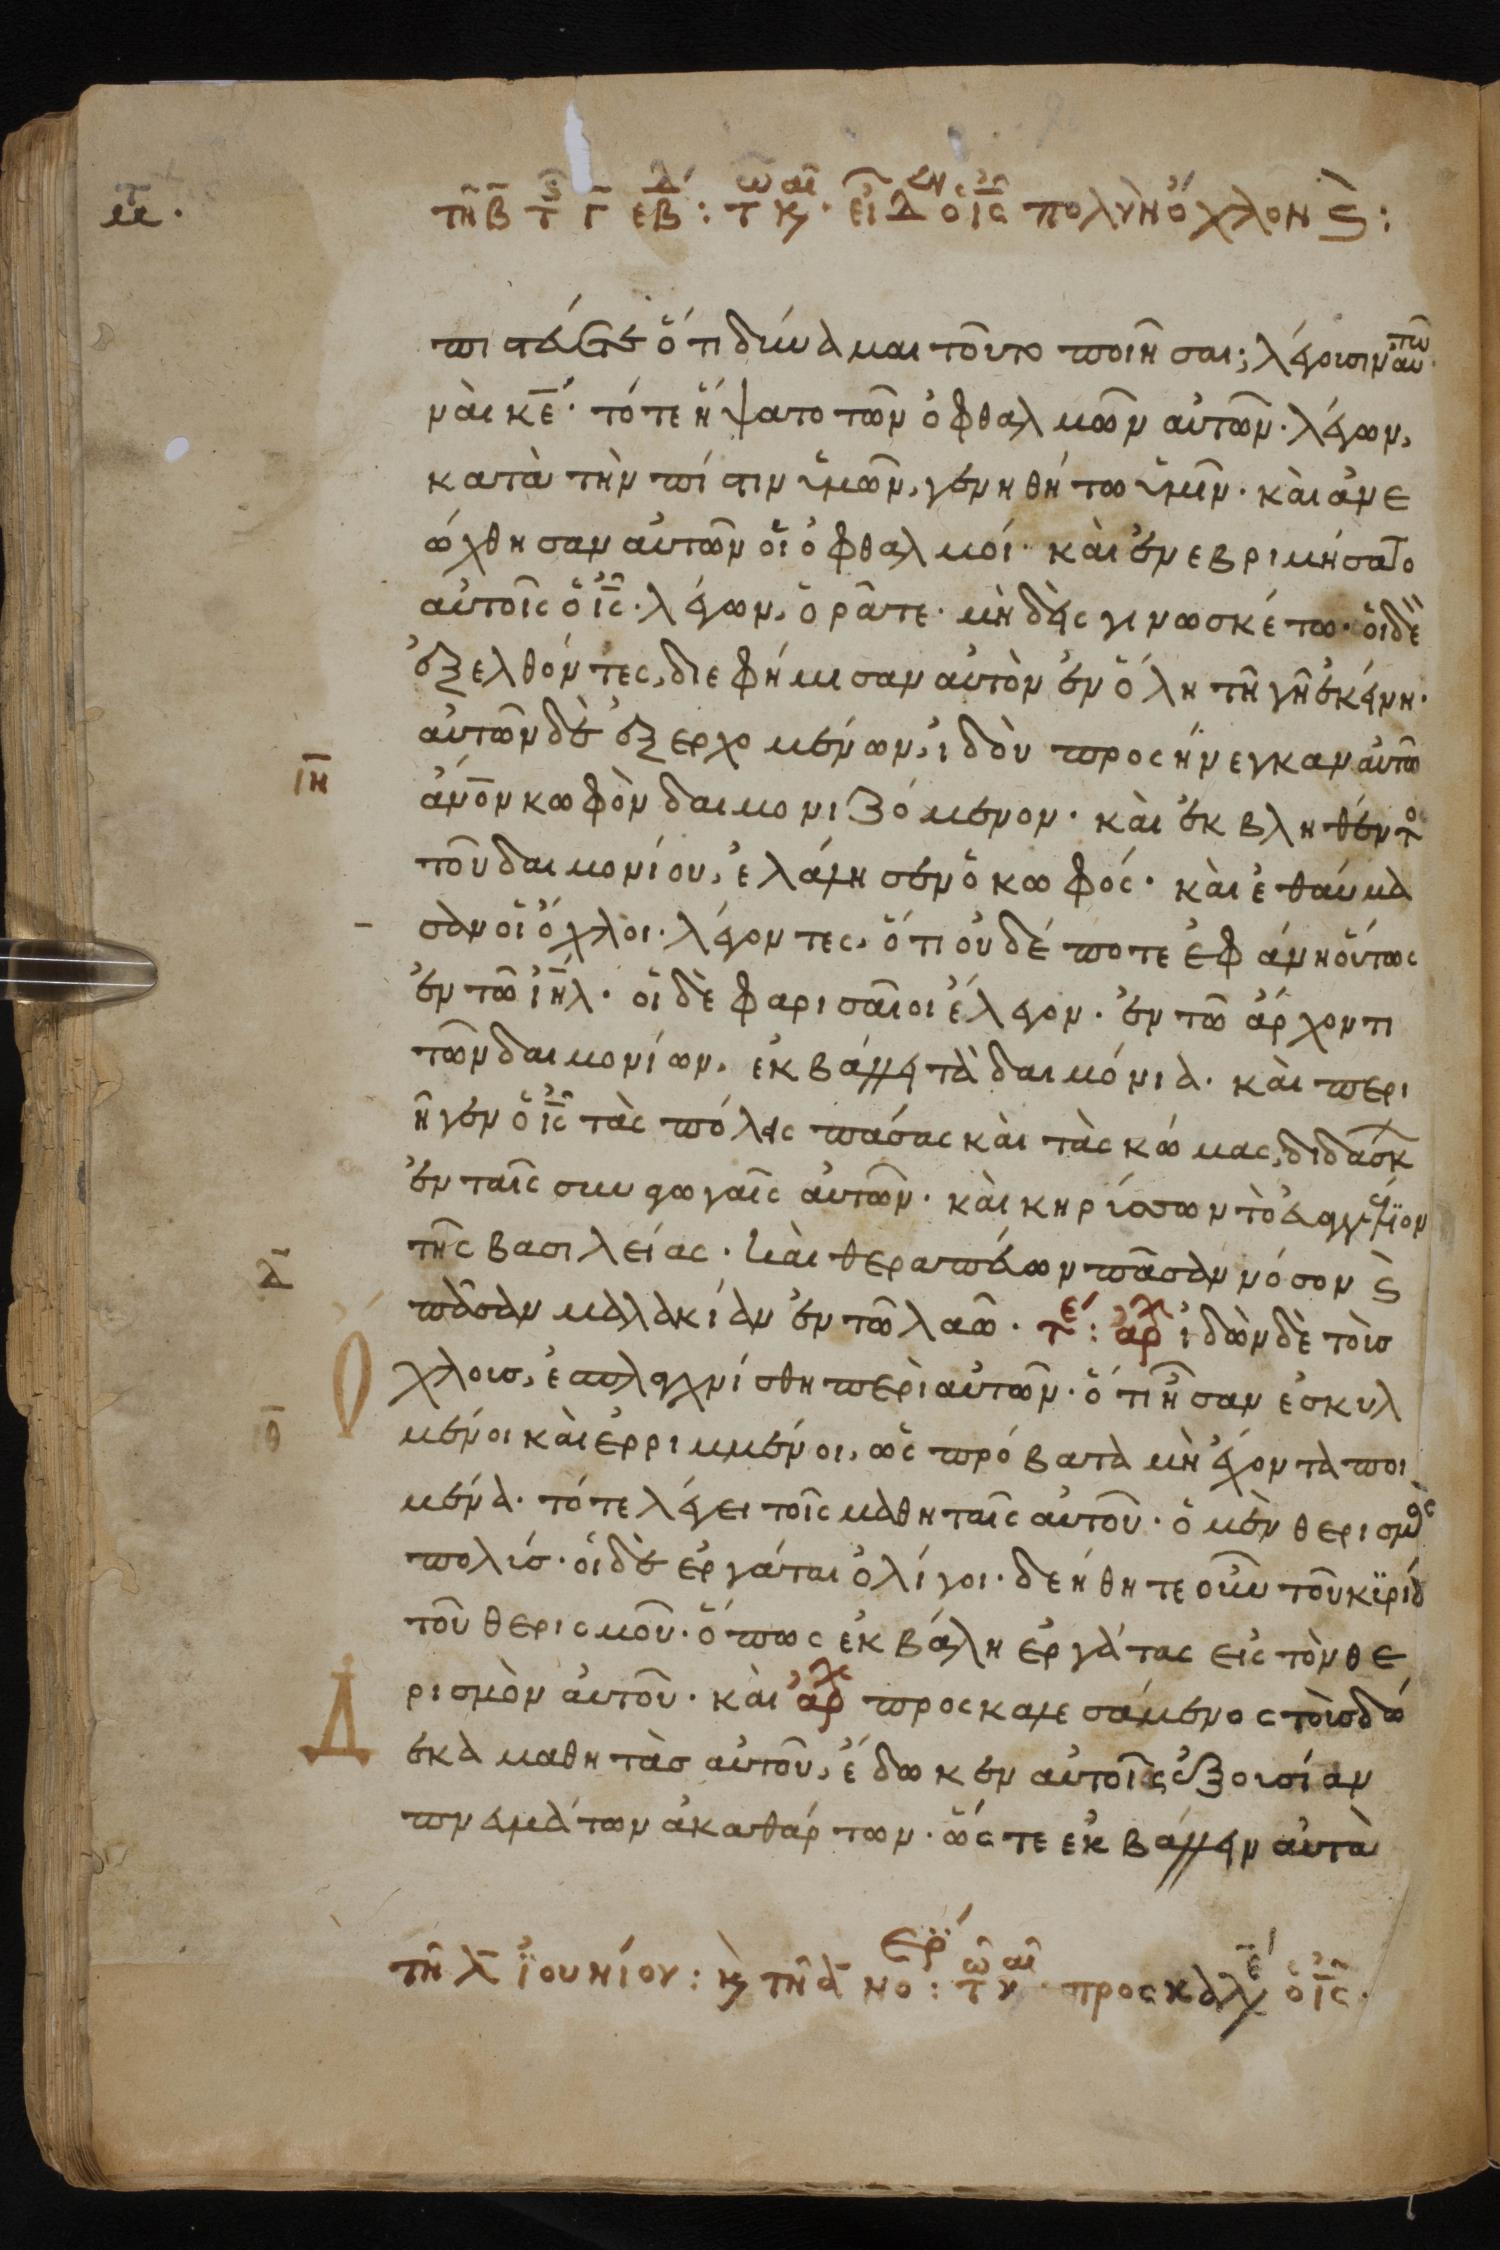 τῆ β τ ς̄ γ̄ εβδ: τῶ κ̀αι. εἶδεν ὁ ἰς̄ πολὺν ὄχλον ϛ̀:
πιστεύετε ὅτι δύναμαι τοῦτο ποιῆσαι; λέγουσιν αὐτῶ
ναὶ κε̄. τότε ἥψατο τῶν ὀφθαλμῶν αὐτῶν. λέγων,
κατὰ τὴν πίστιν ὑμῶν, γενηθήτω ὑμῖν. καὶ ἀνε
ώχθησαν αὐτῶν οἱ ὀφθαλμοί. καὶ ἐνεβριμήσατο
αὐτοῖς ὁ ἰς̄. λέγων, ὁρᾶτε. μὴδεὶς γινωσκέτω. οἱ δὲ
ἐξελθόντες, διεφήμισαν αὐτὸν ἐν ὅλη τῆ γῆ ἐκείνη.
αὐτῶν δὲ ἐξερχομένων, ἰδοὺ προσήνεγκαν αὐτῶ
ιη̄
ἀν̄ον κωφὸν δαιμονιζόμενον. καὶ ἐκβληθέντο
τοῦ δαιμονίου, ἐλάλησεν ὁ κωφός. καὶ ἐθαύμα
σαν οἱ ὄχλοι. λέγοντες. ὅτι οὐδέποτε ἐφάνη οὕτως
ἐν τῶ ἰη̄λ. οἱ δὲ φαρισαῖοι ἔλεγον. ἐν τῶ ἄρχοντι
τῶν δαιμονίων. ἐκβάλλει τὰ δαιμόνια. καὶ περι
ῆγεν ὁ ἰς̄ τὰς πόλεις πάσας καὶ τὰς κώμας, διδάσκ
ἐν ταῖς συναγωγαῖς αὐτῶν. καὶ κηρύσσων τὸ εὐαγγέλιον
τῆς βασιλείας. καὶ θεραπεύων πᾶσαν νόσον ϛ̀
πᾶσαν μαλακίαν ἐν τῶ λαῶ. τε: ἀρχ ἰδὼν δὲ τοὺσ
ὄχλους, ἐσπλαγχνίσθη περὶ αὐτῶν. ὅτι ἦσαν ἐσκυλ
μένοι καὶ ἐρριμμένοι, ὡς πρόβατα μὴ ἔχοντα ποι
θ̄
μένα. τότε λέγει τοῖς μαθηταῖς αὐτοῦ. ὁ μὲν θερισμὸς
πολύσ. οἱ δὲ ἐργάται ὀλίγοι. δεήθητε οὖν τοῦ κυρίου
τοῦ θερισμοῦ. ὅπως ἐκβάλη ἐργάτας εἰς τὸν θε
ρισμὸν αὐτοῦ. καὶ ἀρχ προσκαλεσάμενος τοὺσ δώ
δεκα μαθητὰσ αὐτοῦ, ἔδωκεν αὐτοῖς ἐξουσίαν
πνευμάτων ἀκαθάρτων. ὥστε ἐκβάλλειν αὐτὰ
τῆ λ̄ ἰουνίου: κ̀ τῆ ᾱ νο: τῶ κ̀αι. προσκαλε ὁ ἰς̄.